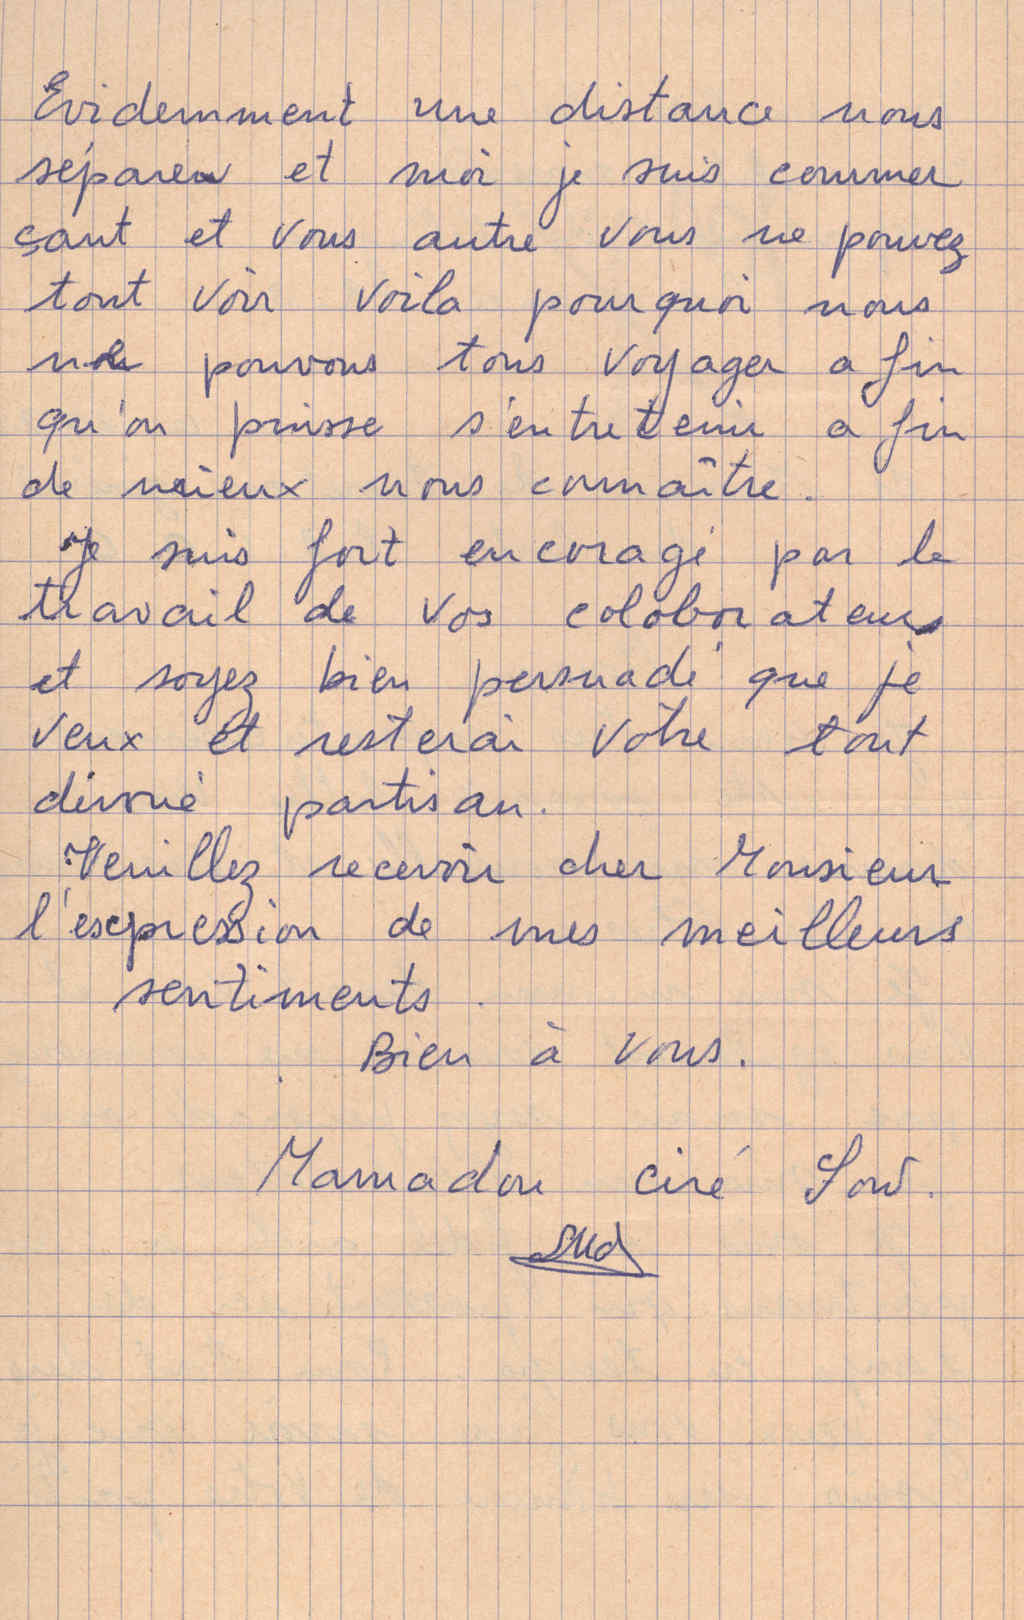 Evidemment une distance nous
séparer et moi je suis commer
çant et vous autre vous ne pouvez
tout voir voila pourquoi nous
ne pouvons tous voyager a fin
qu'on puisse s'entretenir a fin
de mieux nous connaître.
Je suis fort encoragé par le
travail de vos colaborateurs
et soyez bien persuadé que je
veux et resterai vôtre tout
dévoué partisan.
Veuillez recevoir cher Monsieur
l'expression de mes meilleurs
sentiments.
Bien à vous.
Mamadou Ciré Sow.